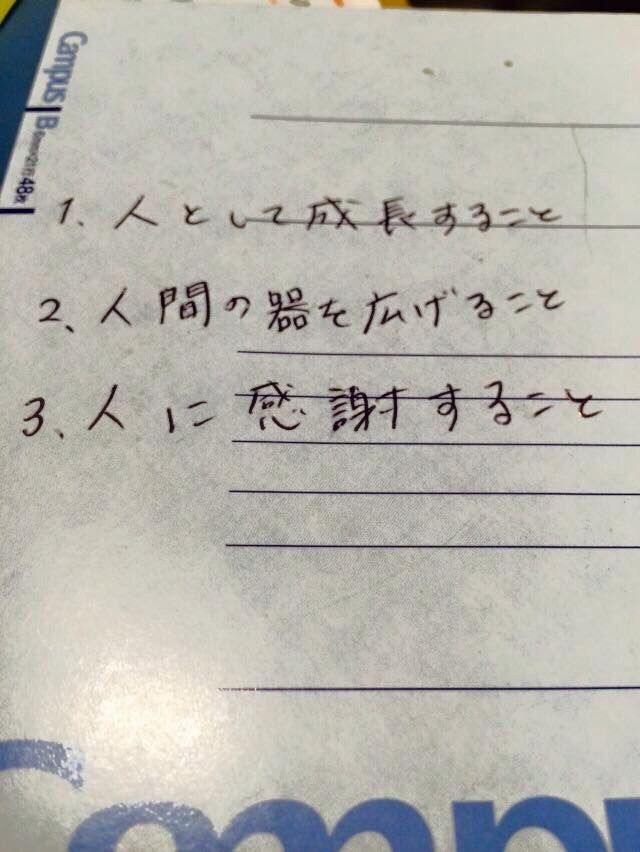 Campus
B 6mm×21行 48枚
1. 人として成長すること
2、人間の器を広げること
3、人に感謝すること
Campus